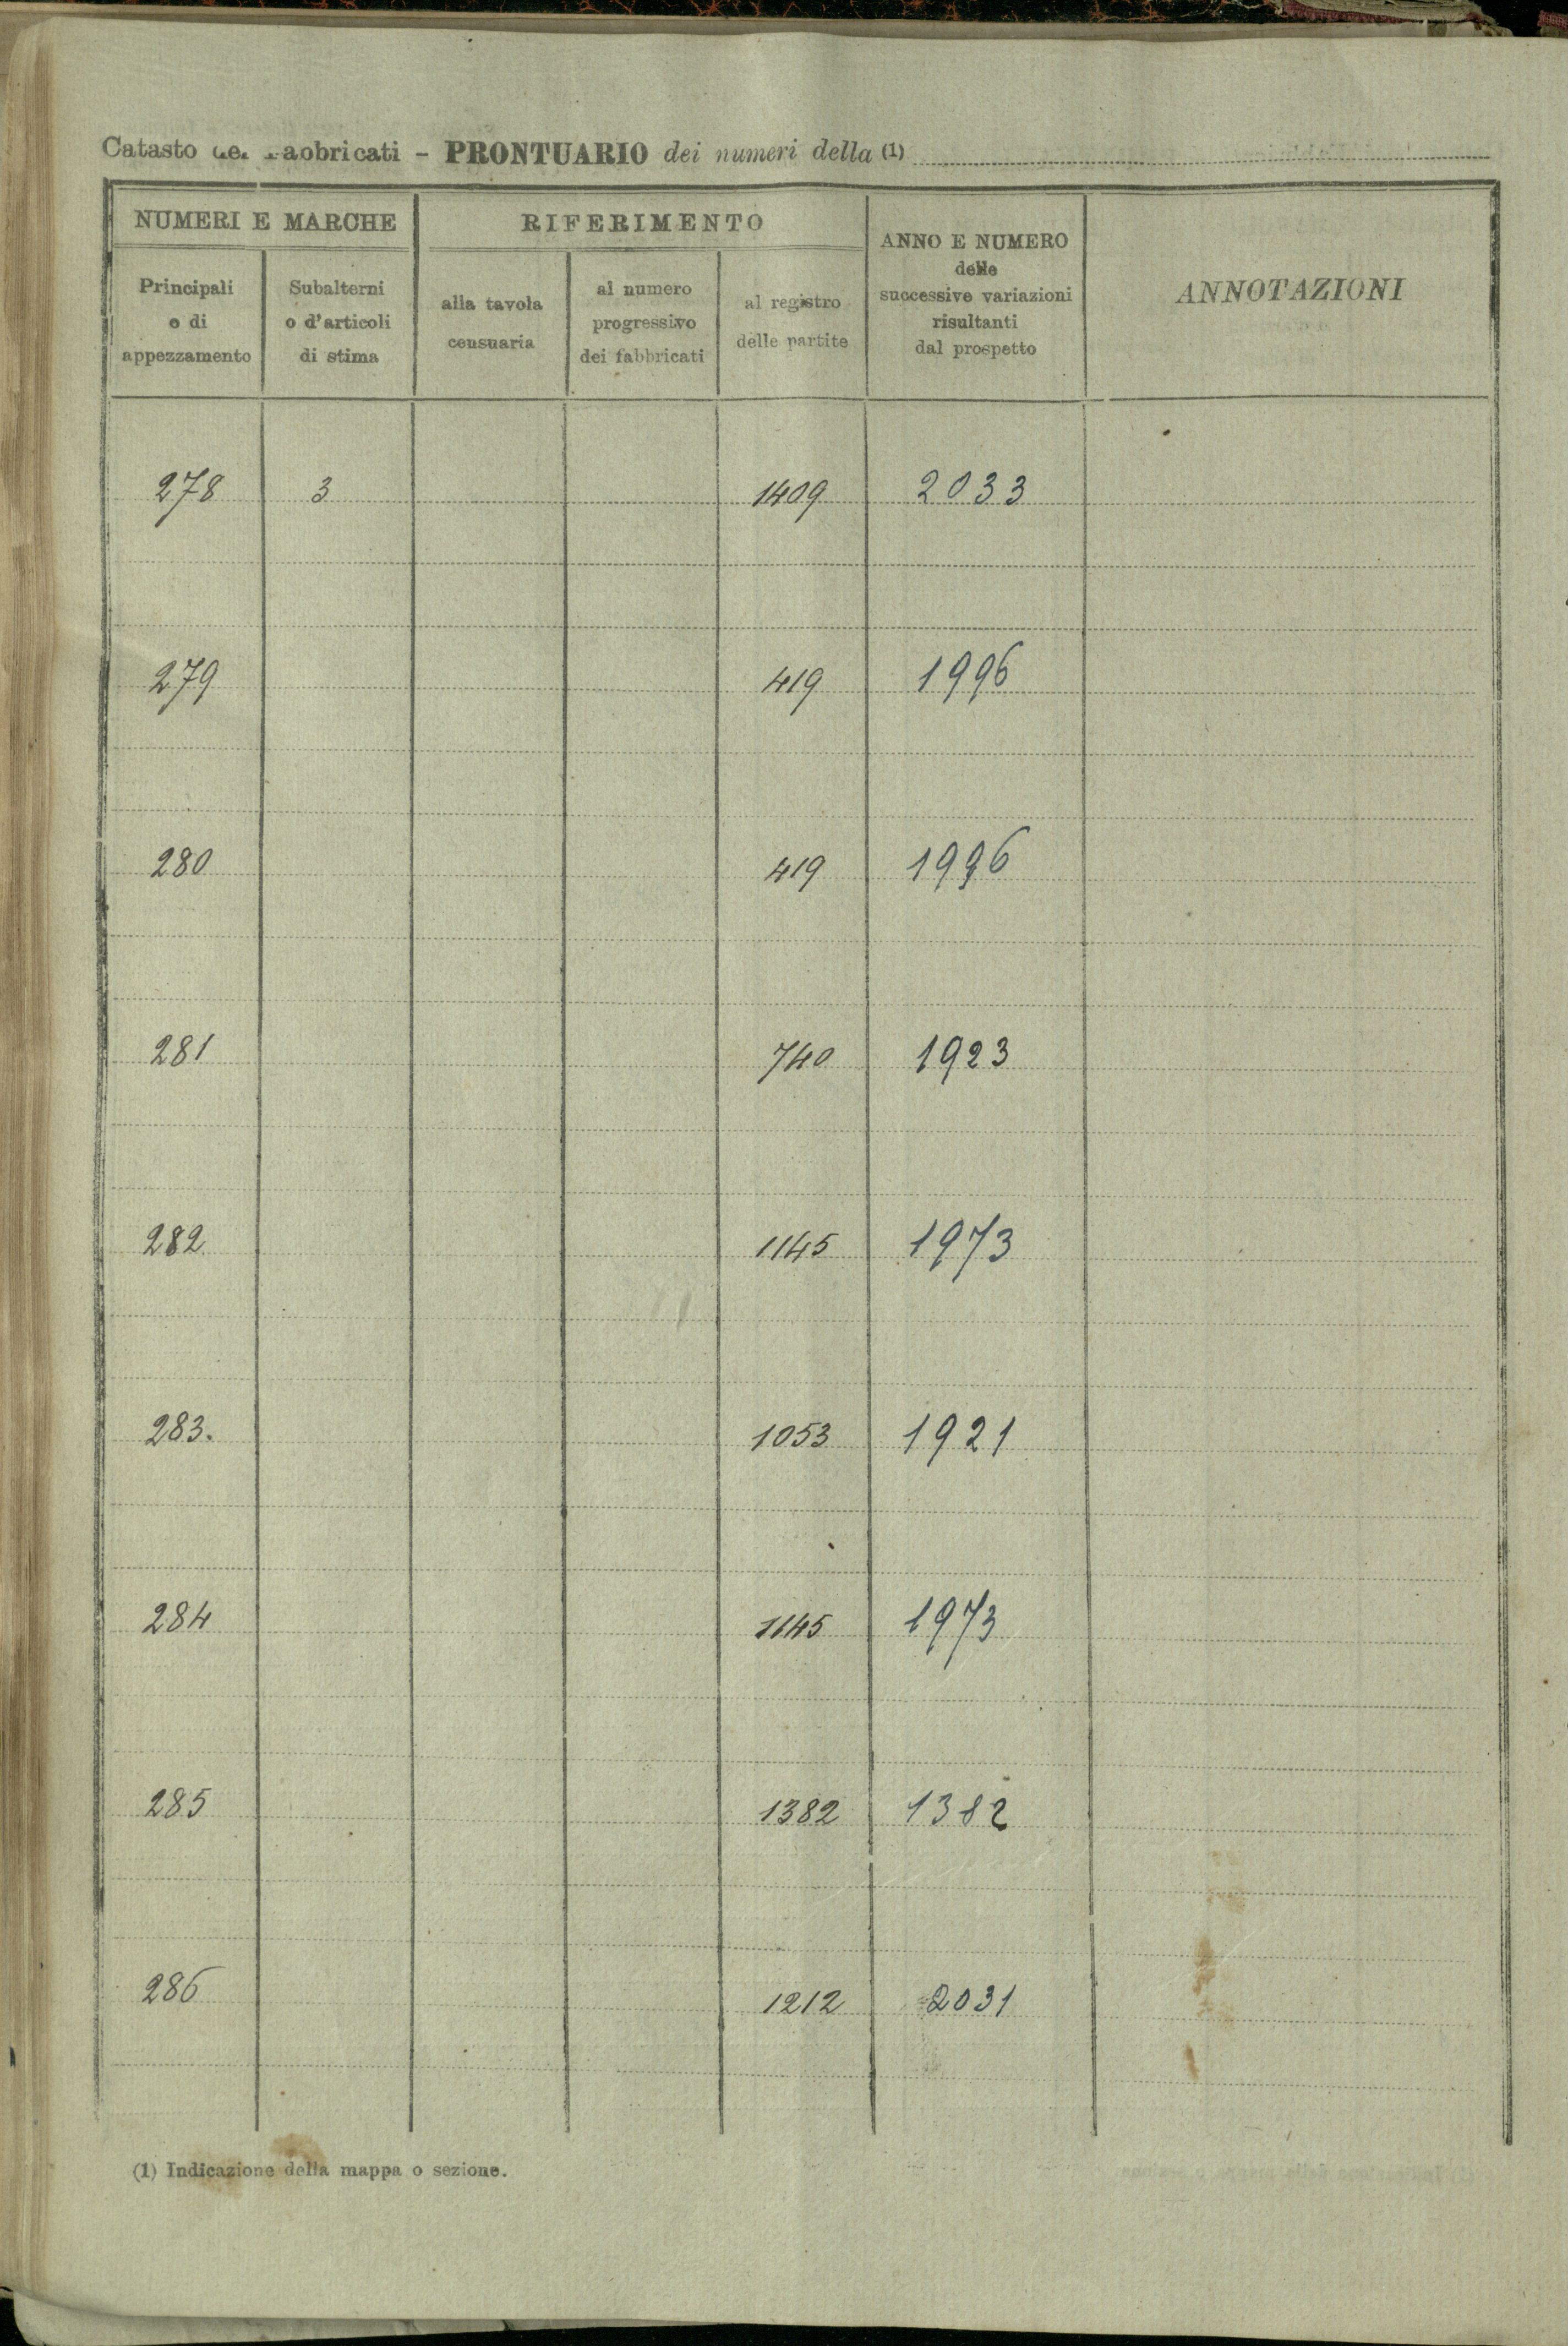 Catasto dei Fabbricati - PRONTUARIO dei numeri della (1)
NUMERI E MARCHE
RIFERIMENTO
ANNO E NUMERO
delle
successive variazioni
risultanti
dal prospetto
ANNOTAZIONI
Principali
e di
appezzamento
Subalterni
o d'articoli
di stima
alla tavola
censuaria
al numero
progressivo
dei fabbricati
al registro
delle partite
278 3 1409 2033
279 419 1996
280 419 1996
281 740 1923
282 1145 1973
283. 1053 1921
284 1145 1973
285 1382 1382
286 1212 2031
(1) Indicazione della mappa o sezione.